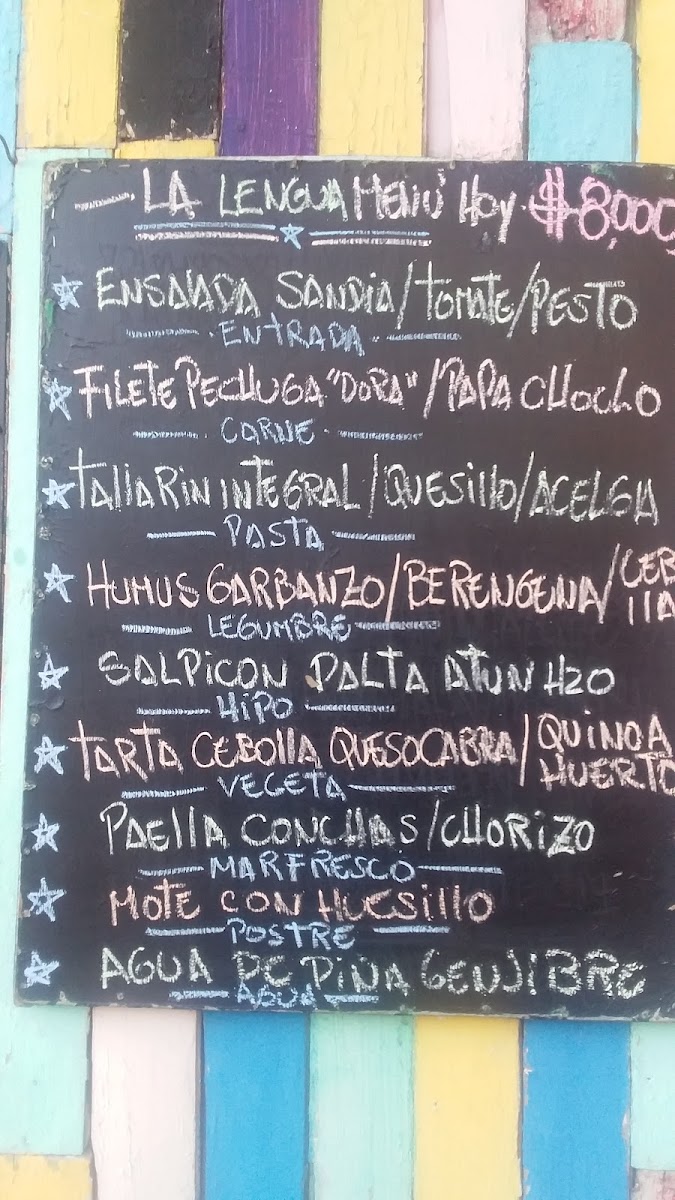 LA LENGUA MENÚ HOY $8,000
ENSALADA SANDIA/TOMATE/PESTO
ENTRADA
FILETE PECHUGA "DORA"/PAPA CHOCLO
CARNE
TALLARIN INTEGRAL/QUESILLO/ACELGA
PASTA
HUMUS GARBANZO/BERENGENA/CEB
LLA
LEGUMBRE
SALPICON PALTA ATUN H2O
HIPO
TARTA CEBOLLA QUESO CABRA/QUINOA
HUERTO
VEGETA
PAELLA CONCHAS/CHORIZO
MARFRESCO
MOTE CON HUESILLO
POSTRE
AGUA DE PIÑA GENJIBRE
AGUA